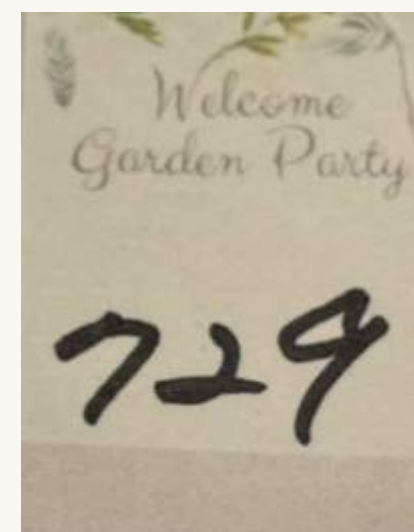 Welcome
Garden Party
729